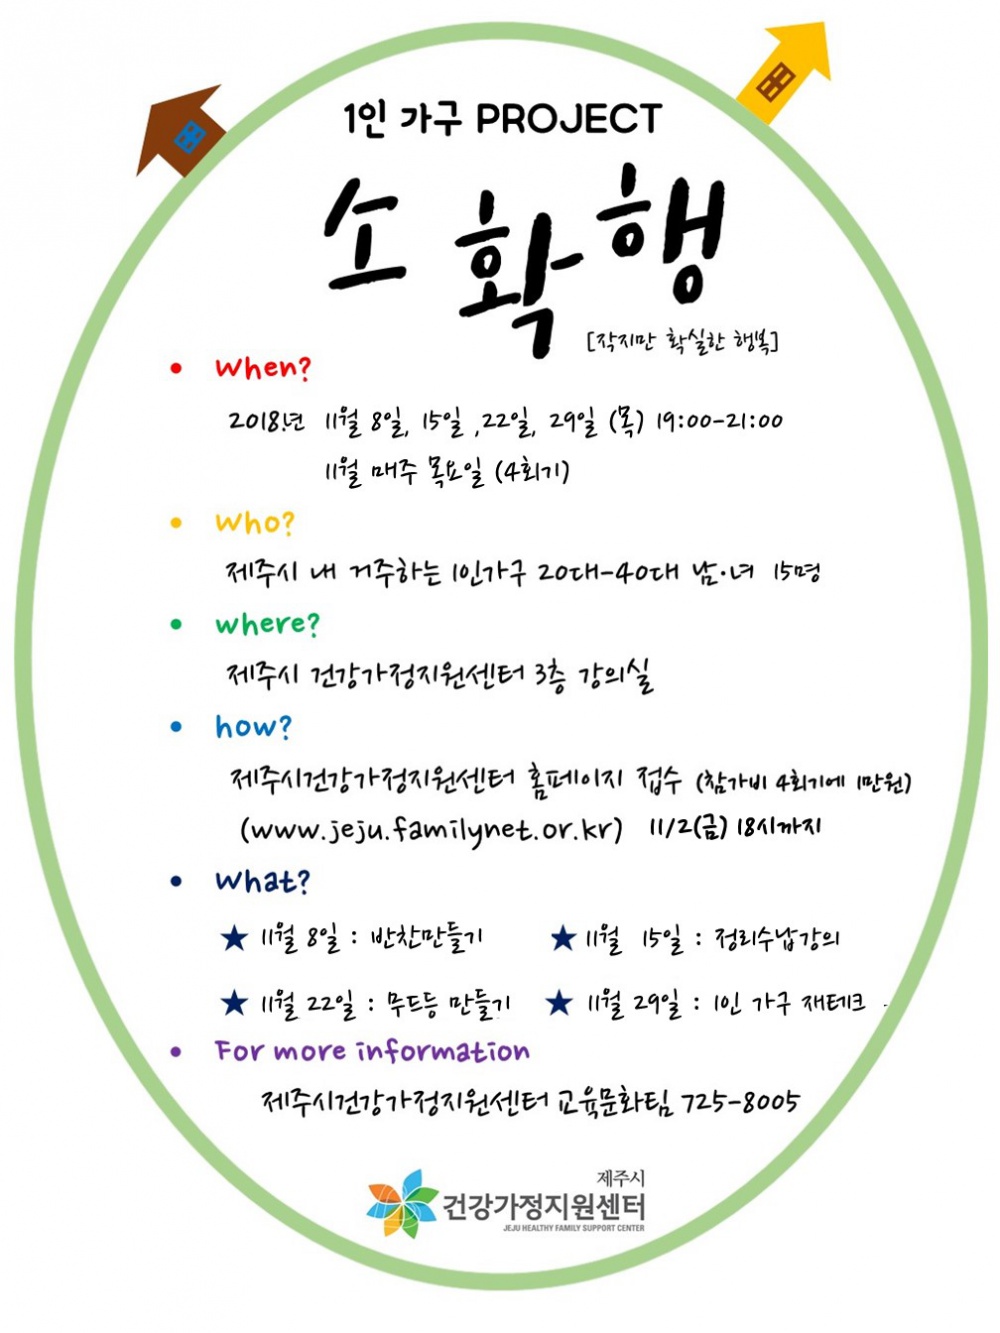 1인 가구 PROJECT
소확행
[작지만 확실한 행복]
• When?
2018년 11월 8일, 15일 ,22일, 29일 (목) 19:00-21:00
11월 매주 목요일 (4회기)
• Who?
제주시 내 거주하는 1인가구 20대-40대 남·녀 15명
• where?
제주시 건강가정지원센터 3층 강의실
• how?
제주시건강가정지원센터 홈페이지 접수 (참가비 4회기에 1만원)
(www.jeju.familynet.or.kr) 11/2(금) 18시까지
• What?
★ 11월 8일 : 반찬만들기 ★ 11월 15일 : 정리수납강의
★ 11월 22일 : 무드등 만들기 ★ 11월 29일 : 1인 가구 재테크
• For more information
제주시건강가정지원센터 교육문화팀 725-8005
제주시
건강가정지원센터
JEJU HEALTHY FAMILY SUPPORT CENTER